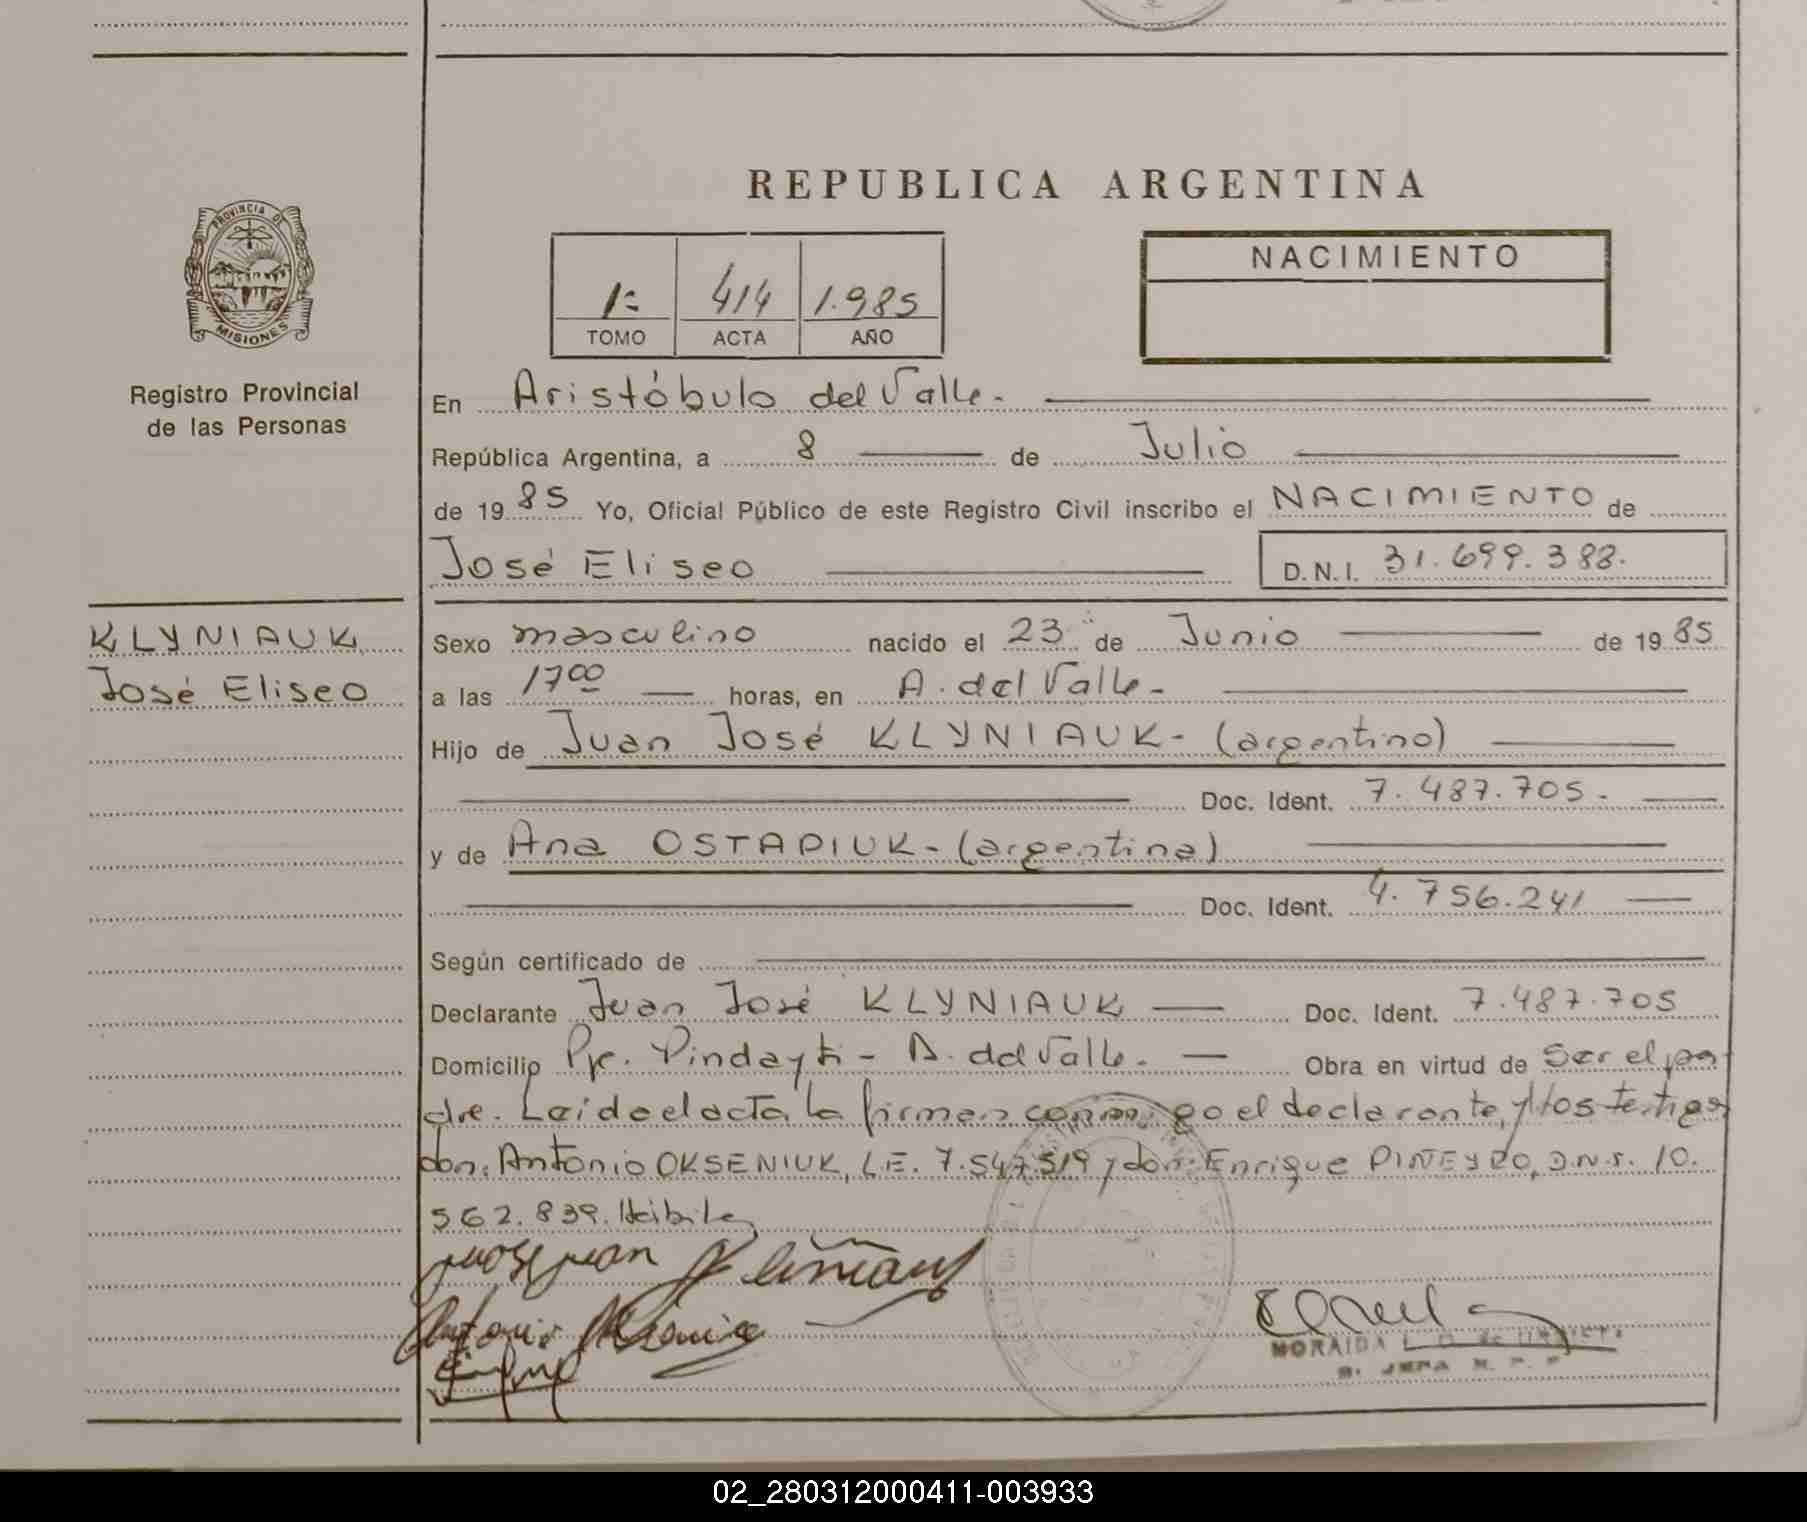 REPUBLICA ARGENTINA
PROVINCIA DE
MISIONES
Registro Provincial
de las Personas
NACIMIENTO
1= 414 1.985
TOMO ACTA AÑO
En Aristóbulo del Valle.
República Argentina, a 8 de Julio
de 1985 Yo, Oficial Público de este Registro Civil inscribo el NACIMIENTO de
José Eliseo D.N.I. 31.699.388.
KLYNIAUK
José Eliseo
Sexo masculino nacido el 23 de Junio de 1985
a las 1700 horas, en A. del Valle.
Hijo de Juan José KLYNIAUK- (argentino)
Doc. Ident. 7.487.705.
y de Ana OSTAPIUK- (argentina)
Doc. Ident. 4.756.241
Según certificado de
Declarante Juan José KLYNIAUK Doc. Ident. 7.487.705
Domicilio Pje. Pindayti - A. del Valle. Obra en virtud de ser el pa-
dre. Leída el acta, la firman conmigo el declarante, y los testigos
don: Antonio OKSENIUK, L.E. 7.547.519 y don: Enrique PIÑEYRO, D.N.I. 10.
562.839. Hábiles
MORAIDA L.
02_280312000411-003933